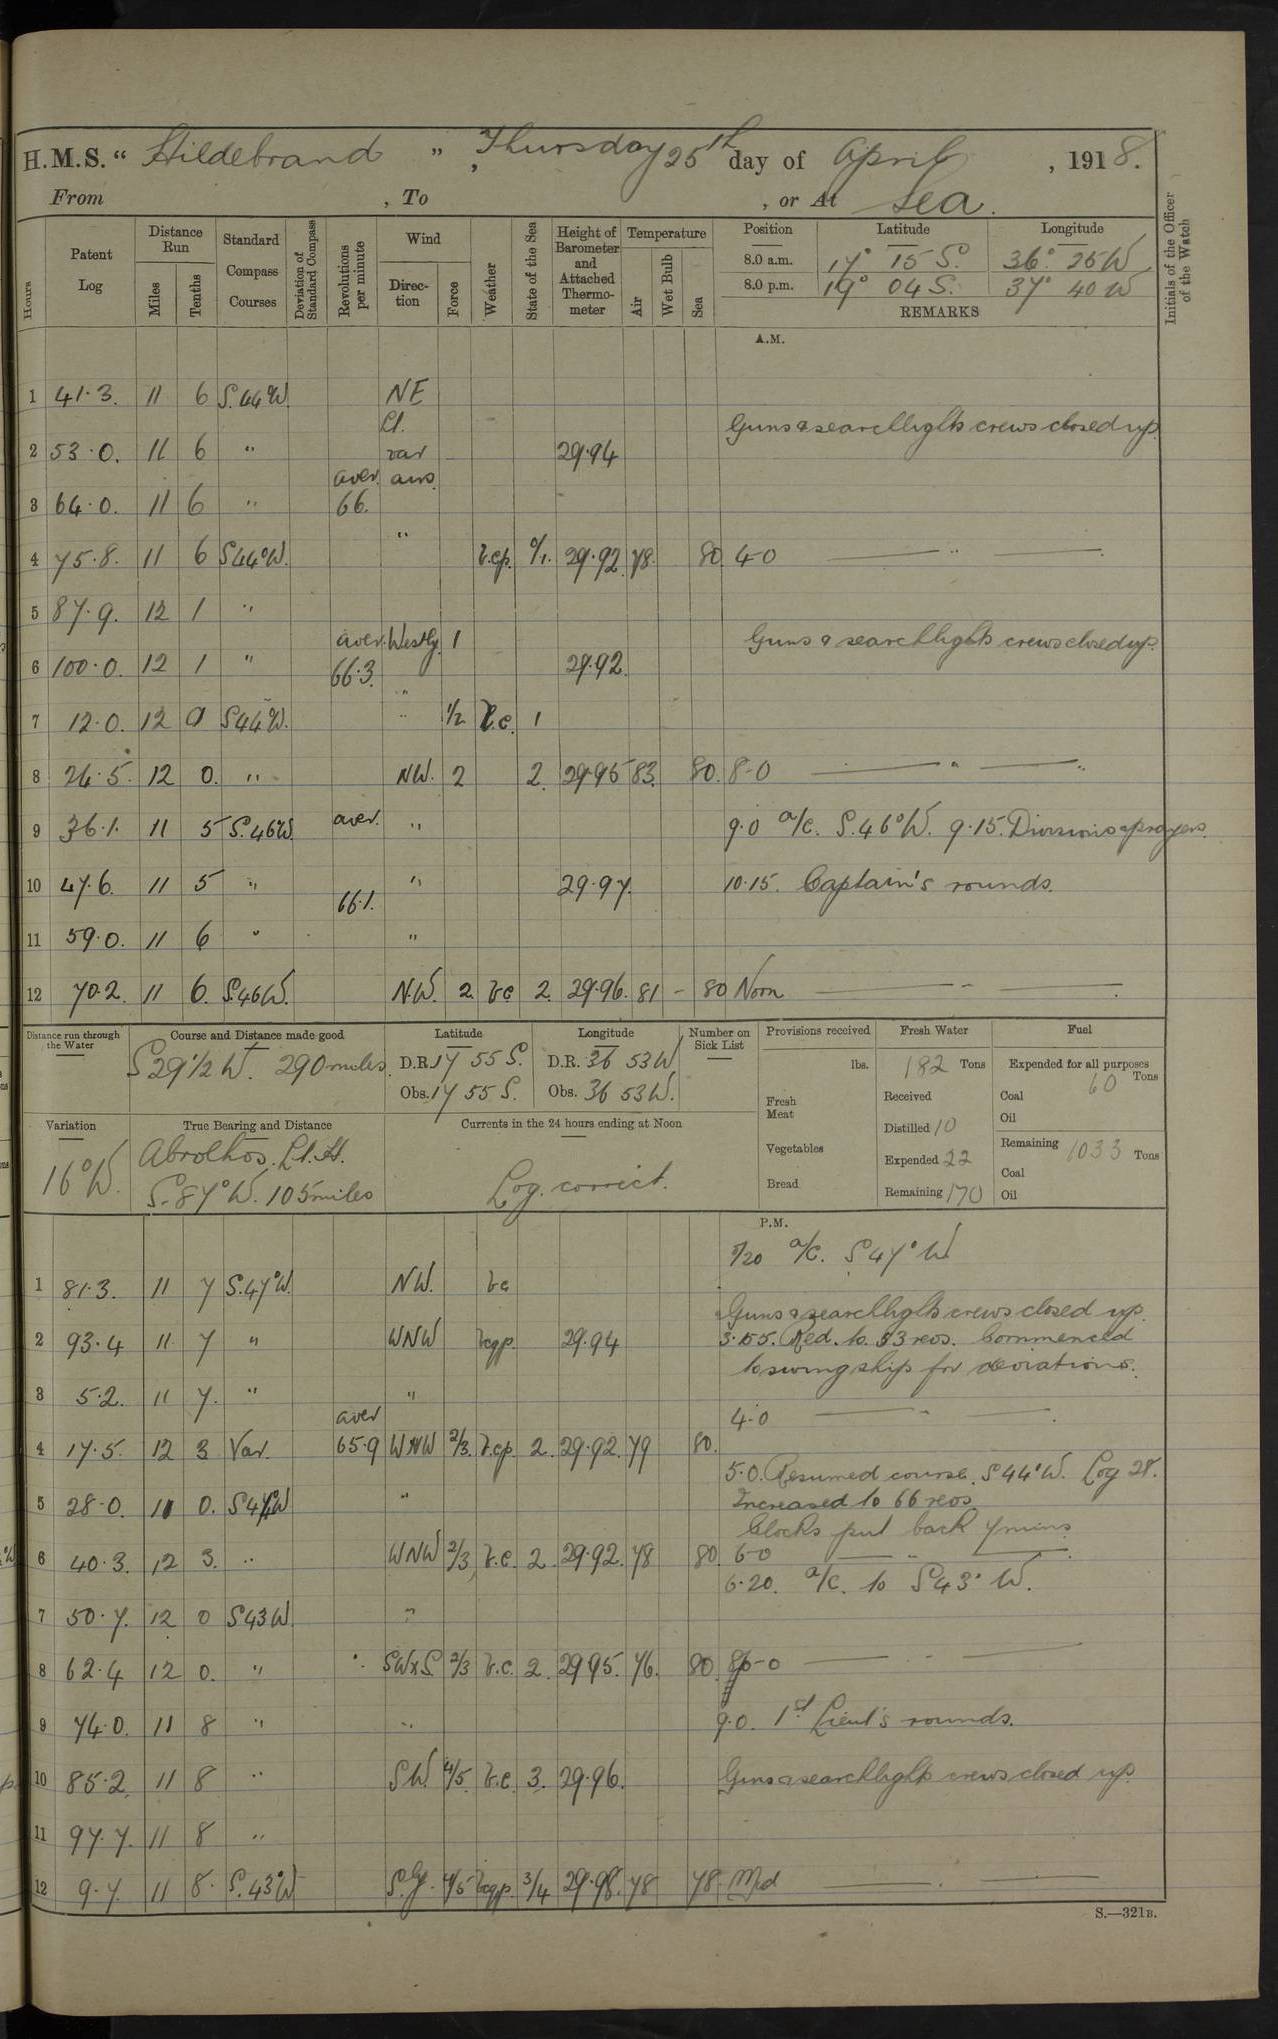 H.M.S. “ Hildebrand ” , Thursday 25th day of April , 1918.
From , To , or At Sea.
Hours
Patent Log
Distance Run
Miles
Tenths
Standard Compass Courses
Deviation of Standard Compass
Revolutions per minute
Wind
Direction
Force
Weather
State of the Sea
Height of Barometer and Attached Thermometer
Temperature
Air
Wet Bulb
Sea
Position Latitude Longitude
8.0 a.m. 17° 15 S. 36° 25 W
8.0 p.m. 19° 04 S. 37° 40 W
REMARKS
Initials of the Officer of the Watch
A.M.
1 41.3. 11 6 S.44°W. NE
Lt. Guns & searchlights crews closed up.
2 53.0. 11 6 " var 29.94
aver. airs.
3 64.0. 11 6 " 66.
4 75.8. 11 6 S44°W. " b.cp. 0/1. 29.92 78. 80 4-0 — " —
5 87.9. 12 1 "
aver. Westly. 1 Guns & searchlights crews closed up.
6 100.0. 12 1 " 66.3. 29.92
7 12.0. 12 0 S44°W. " 1/2 b.c. 1
8 24.5. 12 0. " NW. 2 2. 29.95 83. 80. 8-0 — " —
9 36.1. 11 5 S.46W. aver. " 9.0 a/c. S.46°W. 9.15. Divisions & prayers.
10 47.6. 11 5 " " 29.97. 10.15. Captain's rounds.
66.1.
11 59.0. 11 6 " "
12 70.2. 11 6. S.46W. N.W. 2. bc 2. 29.96. 81 - 80 Noon — " —
Distance run through the Water
Course and Distance made good
S 29 1/2 W. 290 miles.
Latitude
D.R. 17 55 S.
Obs. 17 55 S.
Longitude
D.R. 36 53 W
Obs. 36 53 W.
Number on Sick List
Provisions received
lbs.
Fresh Meat
Vegetables
Bread
Fresh Water
182 Tons
Received
Distilled 10
Expended 22
Remaining 170
Fuel
Expended for all purposes
60 Tons
Coal
Oil
Remaining 1033 Tons
Coal
Oil
Variation
16°W.
True Bearing and Distance
Abrolhos. Lt. H.
S. 87°W. 105 miles
Currents in the 24 hours ending at Noon
Log. correct.
P.M.
a/c. S 47° W
1 81.3. 11 7 S.47°W. NW. bc
Guns & searchlights crews closed up.
2 93.4 11 7 " WNW bcqp. 29.94 3.55. Red. to 53 revs. Commenced
to swing ship for deviations.
3 5.2. 11 7. " "
aver 4.0 — " —
4 17.5. 12 3 Var. 65.9 WNW 2/3. b.cp. 2. 29.92. 79 80.
5.0. Resumed course. S 44°W. Log 28.
5 28.0. 11 0. S44°W " Increased to 66 revs.
Clocks put back 7 mins.
6 40.3. 12 3. " WNW 2/3 b.c. 2. 29.92. 78 80. 6-0 — " —
6.20. a/c. to S 43° W.
7 50.7. 12 0 S43W "
8 62.4 12 0. " SWxS. 2/3 b.c. 2. 29.95. 76. 80. 8-0 — " —
9 74.0. 11 8 " " 9.0. 1st Lieut's rounds.
10 85.2. 11 8 " SW. 4/5 b.c. 3. 29.96. Guns & searchlight crews closed up.
11 97.7. 11 8 "
12 9.7. 11 8. S.43°W S.ly. 4/5 bcqp. 3/4 29.98. 78 78. Mid — " —
S.—321B.